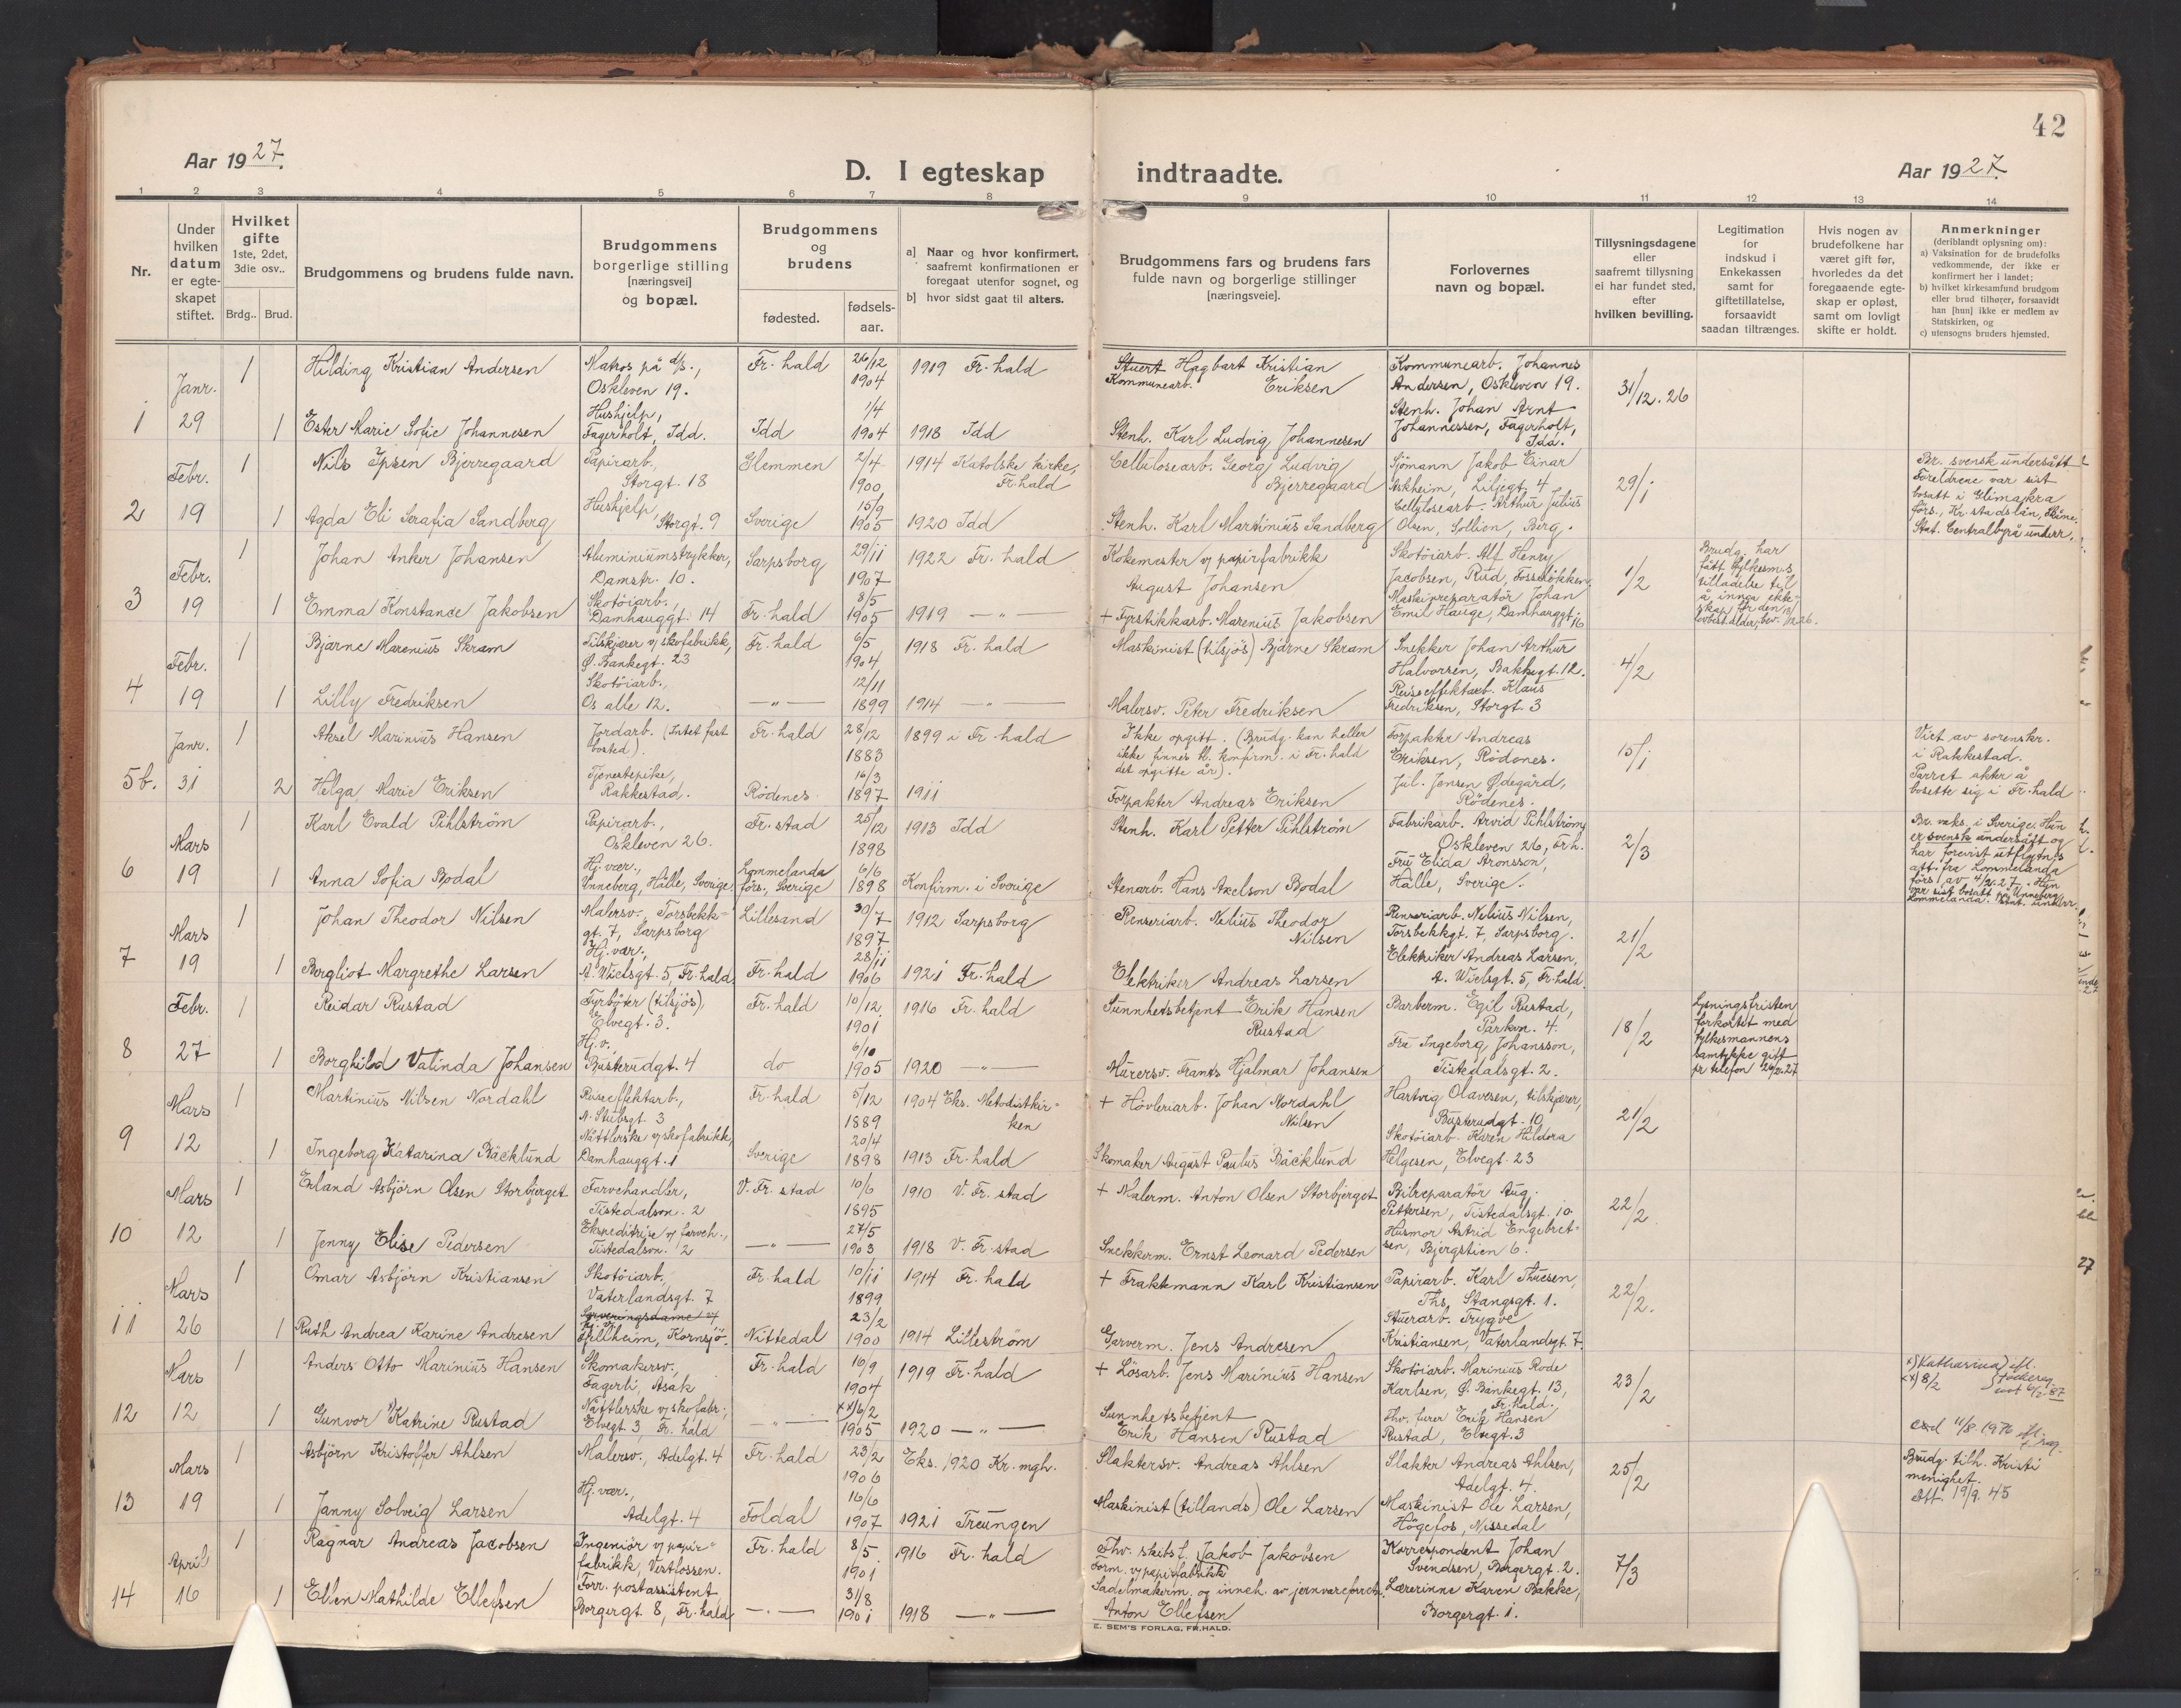 42
Aar 1927.
D. I egteskap indtraadte.
Aar 1927.
1 2 3 4 5 6 7 8 9 10 11 12 13 14
Nr.
Under hvilken datum er egte-skapet stiftet.
Hvilket gifte 1ste, 2det, 3die osv..
Brdg.. Brud.
Brudgommens og brudens fulde navn.
Brudgommens borgerlige stilling [næringsvei] og bopæl.
Brudgommens og brudens
fødested.
fødsels-aar.
a] Naar og hvor konfirmert, saafremt konfirmationen er foregaat utenfor sognet, og
b] hvor sidst gaat til alters.
Brudgommens fars og brudens fars fulde navn og borgerlige stillinger [næringsveie].
Forlovernes navn og bopæl.
Tillysningsdagene eller saafremt tillysning ei har fundet sted, efter hvilken bevilling.
Legitimation for indskud i Enkekassen samt for giftetillatelse, forsaavidt saadan tiltrænges.
Hvis nogen av brudefolkene har været gift før, hvorledes da det foregaaende egte-skap er opløst, samt om lovligt skifte er holdt.
Anmerkninger (deriblandt oplysning om):
a) Vaksination for de brudefolks vedkommende, der ikke er konfirmert her i landet;
b) hvilket kirkesamfund brudgom eller brud tilhører, forsaavidt han [hun] ikke er medlem av Statskirken, og
c) utensogns bruders hjemsted.
Janr. 1 Hilding Kristian Andersen Matros på d/s., Oskleven 19. Fr.hald 26/12 1904 1919 Fr.hald Stuert Kommunearb. Hagbart Kristian Eriksen Kommunearb. Johannes Andersen, Oskleven 19. 31/12.26
1 29 1 Ester Marie Sofie Johannesen Hushjelp, Fagerholt, Idd. Idd 1/4 1904 1918 Idd Stenh. Karl Ludvig Johannesen Stenh. Johan Arnt Johannessen, Fagerholt, Idd.
Febr. 1 Nils Ipsen Bjerregaard Papirarb., Storgt. 18 Glemmen 2/4 1900 1914 Katolske kirke, Fr.hald Cellulosearb. Georg Ludvig Bjerregaard Sjömann Jakob Einar Askheim, Liljegt. 4 29/1 Br. svensk undersått Foreldrene var sist bosatt i Glimakra förs., Kr.stads län, Skåne. Stat. Centralbyrå underr.
2 19 1 Agda Eli Serafia Sandberg Hushjelp, Storgt. 9 Sverige 15/9 1905 1920 Idd Stenh. Karl Martinius Sandberg Cellulosearb. Arthur Julius Olsen, Sollien, Berg.
Febr. 1 Johan Anker Johansen Aluminiumstrykker, Damstr. 10. Sarpsborg 29/11 1907 1922 Fr.hald Kokemester v/ papirfabrikk August Johansen Skotöiarb. Alf Henry Jacobsen, Rud, Fosselökken 1/2 Brudg. har fått fylkesm.s tilladelse til å inngå ekte-skap för den lovbest. alder, bev.
3 19 1 Emma Konstance Jakobsen Skotöiarb., Damhauggt. 14 Fr.hald 8/5 1905 1919 —"— + Fyrstikkarb. Marenius Jakobsen Maskinreparatör Johan Emil Hauge, Damhauggt. 16
Febr. 1 Bjarne Marenius Skram Tilskjærer v/ skofabrikk, Ø. Bankegt. 23 Fr.hald 6/5 1904 1918 Fr.hald Maskinist (tilsjös) Bjarne Skram Snekker Johan Arthur Halvorsen, Bakkegt. 12. 4/2
4 19 1 Lilly Fredriksen Skotöiarb., Os alle 12. —"— 12/11 1899 1914 —"— Malersv. Peter Fredriksen Reiseeffektarb. Klaus Fredriksen, Storgt. 3
Janr. 1 Aksel Marinius Hansen Jordarb. (Intet fast bosted). Fr.hald 28/12 1883 1899 i Fr.hald Ikke opgitt. (Brudg. kan heller ikke finnes bl. konfirm. i Fr.hald det opgitte år). Forpakter Andreas Eriksen, Rödenes. 15/1 Viet av sorenskr. i Rakkestad. Parret akter å bosette sig i Fr.hald
5b. 31 2 Helga Marie Eriksen Tjenestepike, Rakkestad. Rödenes 16/3 1897 1911 Forpakter Andreas Eriksen Jul. Jensen Ødegård, Rödenes.
Mars 1 Karl Evald Pihlström Papirarb., Oskleven 26. Fr.stad 25/12 1898 1913 Idd Stenh. Karl Petter Pihlström Fabrikarb. Arvid Pihlström, Oskleven 26, Fr.h. 2/3 Br. vaks. i Sverige. Hun er svensk undersått og har forevist utflytn.s att. fra Lommelanda förs. av 4/2.27. Hun var sist bosatt på Unneberg, Lommelanda. Stat. underr.
6 19 1 Anna Sofia Bodal Hj.vær., Unneberg, Hälle, Sverige. Lommelanda förs., Sverige 6/6 1898 Konfirm. i Sverige Stenarb. Hans Axelson Bodal Fru Elida Aronsson, Hälle, Sverige.
Mars 1 Johan Theodor Nilsen Malersv. Torsbekk-gt. 7, Sarpsborg Lillesand 30/7 1897 1912 Sarpsborg Renseriarb. Nelius Theodor Nilsen Renseriarb. Nelius Nilsen, Torsbekkgt. 7, Sarpsborg. 21/2
7 19 1 Bergliot Margrethe Larsen Hj.vær., A. Wielsgt. 5, Fr.hald. Fr.hald 28/11 1906 1921 Fr.hald Elektriker Andreas Larsen Elektriker Andreas Larsen, A. Wielsgt. 5, Fr.hald.
Febr. 1 Reidar Rustad Fyrböter (tilsjös), Elvegt. 3. Fr.hald 10/12 1901 1916 Fr.hald Sunnhetsbetjent Erik Hansen Rustad Barberm. Egil Rustad, Parkvn. 4. 18/2 Lysningsfristen forkortet med fylkesmannens samtykke gitt pr telefon 26/2.27
8 27 1 Borghild Valinda Johansen Hj.v., Busterudgt. 4 do 6/10 1905 1920 —"— Murersv. Frants Hjalmar Johansen Fru Ingeborg Johansson, Tistedalsgt. 2.
Mars 1 Martinius Nilsen Nordahl Reiseeffektarb., N. Stubsgt. 3 Fr.hald 5/12 1889 1904 Eks. Metodistkir-ken + Hövleriarb. Johan Nordahl Nilsen Hartvig Olavesen, tilskjærer, Busterudgt. 10 21/2
9 12 1 Ingeborg Katarina Bäcklund Nåttlerske v/ skofabrikk, Damhauggt. 1 Sverige 20/4 1898 1913 Fr.hald Skomaker August Paulus Bäcklund Skotöiarb. Karen Hildora Helgesen, Elvegt. 23
Mars 1 Erland Asbjörn Olsen Storbjerget Farvehandler, Tistedalsvn. 2 V. Fr.stad 10/6 1895 1910 V. Fr.stad + Malerm. Anton Olsen Storbjerget Bilreparatör Aug. Pettersen, Tistedalsgt. 10 22/2
10 12 1 Jenny Elise Pedersen Ekspeditrise v/ farveh., Tistedalsvn. 2 —"— 27/5 1903 1918 V. Fr.stad Snekkerm. Ernst Leonard Pedersen Husmor Astrid Engebret-sen, Bjergstien 6.
Mars 1 Omar Asbjörn Kristiansen Skotöiarb., Vaterlandsgt. 7 Fr.hald 10/11 1899 1914 Fr.hald + Fraktemann Karl Kristiansen Papirarb. Karl Thuesen, Ths. Stangsgt. 1. 22/2.
11 26 1 Ruth Andrea Karine Andresen Serveringsdame v/ Fjellheim, Kornsjö. Nittedal 23/2 1900 1914 Lilleström Garverm. Jens Andresen Stuerarb. Trygve Kristiansen, Vaterlandsgt. 7.
Mars 1 Anders Otto Marinius Hansen Skomakersv., Fagerli, Asak Fr.hald 16/9 1904 1919 Fr.hald + Lösarb. Jens Marinius Hansen Skotöiarb. Marinius Rode Karlsen, Ø. Bankegt. 13, Fr.hald. 23/2 x) Katharina xx) 8/2
12 12 1 Gunvor x) Katrine Rustad Nåttlerske v/ skofabr., Elvegt. 3, Fr.hald —"— xx) 6/2 1905 1920 —"— Sunnhetsbetjent Erik Hansen Rustad Fhv. furer Erik Hansen Rustad, Elvegt. 3
Mars 1 Asbjörn Kristoffer Ahlsen Malersv., Adelgt. 4 Fr.hald 23/2 1906 Eks. 1920 Kr. mgh. Slaktersv. Andreas Ahlsen Slakter Andreas Ahlsen, Adelgt. 4. 25/2 Brudg. tilh. Kristi menighet. Att. 19/9.45
13 19 1 Janny Solveig Larsen Hj.vær., Adelgt. 4 Foldal 16/6 1907 1921 Treungen Maskinist (tillands) Ole Larsen Maskinist Ole Larsen, Högefos, Nissedal
April 1 Ragnar Andreas Jacobsen Ingeniör v/ papir-fabrikk, Vestfossen. Fr.hald 8/5 1901 1916 Fr.hald Fhv. skibsf. Jakob Jakobsen Form. v/ papirfabrikk Korrespondent Johan Svendsen, Borgergt. 2. 7/3
14 16 1 Ellen Mathilde Ellefsen Forr. postassistent Borgergt. 8, Fr.hald —"— 31/8 1901 1918 —"— Sadelmakerm. og inneh. av jernvareforretn. Anton Ellefsen Lærerinne Karen Bakke, Borgergt. 1.
E. SEM'S FORLAG, FR.HALD.